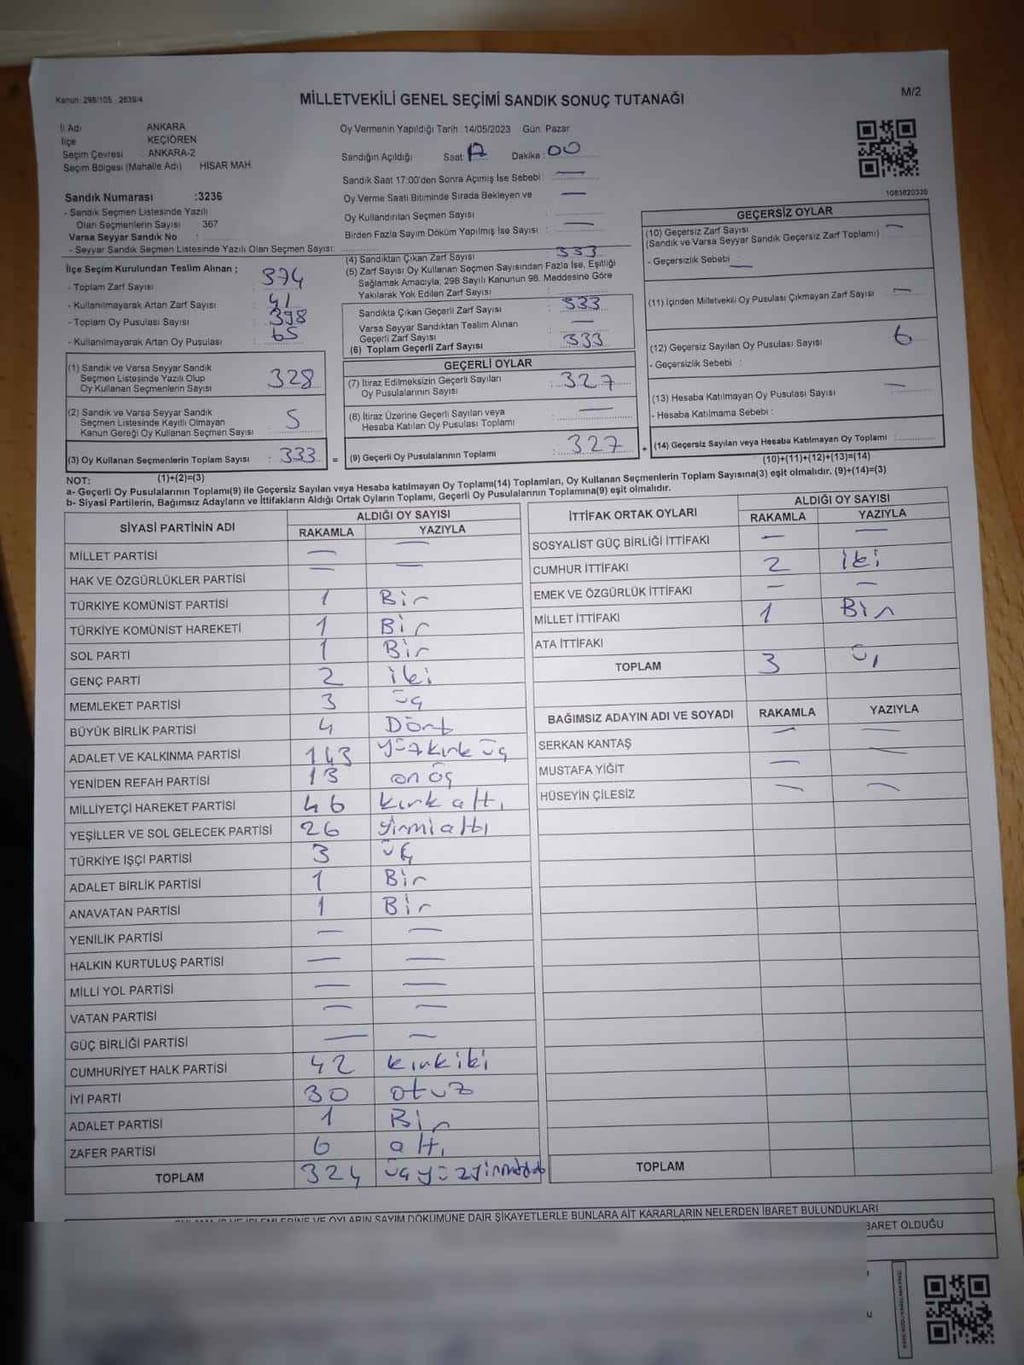 Kanun: 298/105 - 2839/4
MİLLETVEKİLİ GENEL SEÇİMİ SANDIK SONUÇ TUTANAĞI
M/2
İl Adı ANKARA
İlçe KEÇİÖREN
Seçim Çevresi ANKARA-2
Seçim Bölgesi (Mahalle Adı) HİSAR MAH.
Sandık Numarası :3236
- Sandık Seçmen Listesinde Yazılı
Olan Seçmenlerin Sayısı 367
Varsa Seyyar Sandık No :
- Seyyar Sandık Seçmen Listesinde Yazılı Olan Seçmen Sayısı:
Oy Vermenin Yapıldığı Tarih 14/05/2023 Gün: Pazar
Sandığın Açıldığı Saat: Dakika: 00
Sandık Saat 17:00'den Sonra Açımış İse Sebebi : —
Oy Verme Saati Bitiminde Sırada Bekleyen ve —
Oy Kullandırılan Seçmen Sayısı
Birden Fazla Sayım Döküm Yapılmış İse Sayısı : —
1083820320
İlçe Seçim Kurulundan Teslim Alınan ;
- Toplam Zarf Sayısı : 374
- Kullanılmayarak Artan Zarf Sayısı : 41
- Toplam Oy Pusulası Sayısı : 398
- Kullanılmayarak Artan Oy Pusulası : 65
(1) Sandık ve Varsa Seyyar Sandık
Seçmen Listesinde Yazılı Olup
Oy Kullanan Seçmenlerin Sayısı : 328
(2) Sandık ve Varsa Seyyar Sandık
Seçmen Listesinde Kayıtlı Olmayan
Kanun Gereği Oy Kullanan Seçmen Sayısı : 5
(3) Oy Kullanan Seçmenlerin Toplam Sayısı : 333 =
(4) Sandıktan Çıkan Zarf Sayısı : 333
(5) Zarf Sayısı Oy Kullanan Seçmen Sayısından Fazla İse, Eşitliği
Sağlamak Amacıyla, 298 Sayılı Kanunun 98. Maddesine Göre
Yakılarak Yok Edilen Zarf Sayısı :
Sandıkta Çıkan Geçerli Zarf Sayısı : 333
Varsa Seyyar Sandıktan Teslim Alınan
Geçerli Zarf Sayısı : —
(6) Toplam Geçerli Zarf Sayısı : 333
GEÇERLİ OYLAR
(7) İtiraz Edilmeksizin Geçerli Sayılan
Oy Pusulalarının Sayısı : 327
(8) İtiraz Üzerine Geçerli Sayılan veya
Hesaba Katılan Oy Pusulası Toplamı : —
(9) Geçerli Oy Pusulalarının Toplamı : 327 +
GEÇERSİZ OYLAR
(10) Geçersiz Zarf Sayısı
(Sandık ve Varsa Seyyar Sandık Geçersiz Zarf Toplamı) : —
- Geçersizlik Sebebi : —
(11) İçinden Milletvekili Oy Pusulası Çıkmayan Zarf Sayısı : —
(12) Geçersiz Sayılan Oy Pusulası Sayısı : 6
- Geçersizlik Sebebi :
(13) Hesaba Katılmayan Oy Pusulası Sayısı : —
- Hesaba Katılmama Sebebi :
(14) Geçersiz Sayılan veya Hesaba Katılmayan Oy Toplamı :
NOT: (1)+(2)=(3)
(10)+(11)+(12)+(13)=(14)
a- Geçerli Oy Pusulalarının Toplamı(9) ile Geçersiz Sayılan veya Hesaba katılmayan Oy Toplamı(14) Toplamları, Oy Kullanan Seçmenlerin Toplam Sayısına(3) eşit olmalıdır. (9)+(14)=(3)
b- Siyasi Partilerin, Bağımsız Adayların ve İttifakların Aldığı Ortak Oyların Toplamı, Geçerli Oy Pusulalarının Toplamına(9) eşit olmalıdır.
SİYASİ PARTİNİN ADI ALDIĞI OY SAYISI
RAKAMLA YAZIYLA
MİLLET PARTİSİ — —
HAK VE ÖZGÜRLÜKLER PARTİSİ — —
TÜRKİYE KOMÜNİST PARTİSİ 1 Bir
TÜRKİYE KOMÜNİST HAREKETİ 1 Bir
SOL PARTİ 1 Bir
GENÇ PARTİ 2 iki
MEMLEKET PARTİSİ 3 üç
BÜYÜK BİRLİK PARTİSİ 4 Dört
ADALET VE KALKINMA PARTİSİ 143 yüzkırk üç
YENİDEN REFAH PARTİSİ 13 on üç
MİLLİYETÇİ HAREKET PARTİSİ 46 kırk altı
YEŞİLLER VE SOL GELECEK PARTİSİ 26 yirmi altı
TÜRKİYE İŞÇİ PARTİSİ 3 üç
ADALET BİRLİK PARTİSİ 1 Bir
ANAVATAN PARTİSİ 1 Bir
YENİLİK PARTİSİ — —
HALKIN KURTULUŞ PARTİSİ — —
MİLLİ YOL PARTİSİ — —
VATAN PARTİSİ — —
GÜÇ BİRLİĞİ PARTİSİ — —
CUMHURİYET HALK PARTİSİ 42 kırkiki
İYİ PARTİ 30 otuz
ADALET PARTİSİ 1 Bir
ZAFER PARTİSİ 6 altı
TOPLAM 324
İTTİFAK ORTAK OYLARI ALDIĞI OY SAYISI
RAKAMLA YAZIYLA
SOSYALİST GÜÇ BİRLİĞİ İTTİFAKI — —
CUMHUR İTTİFAKI 2 iki
EMEK VE ÖZGÜRLÜK İTTİFAKI — —
MİLLET İTTİFAKI 1 Bir
ATA İTTİFAKI
TOPLAM 3 üç
BAĞIMSIZ ADAYIN ADI VE SOYADI RAKAMLA YAZIYLA
SERKAN KANTAŞ — —
MUSTAFA YİĞİT — —
HÜSEYİN ÇİLESİZ — —
TOPLAM
İŞLEMLERİNE VE OYLARIN SAYIM DÖKÜMÜNE DAİR ŞİKAYETLERLE BUNLARA AİT KARARLARIN NELERDEN İBARET BULUNDUKLARI
BARET OLDUĞU